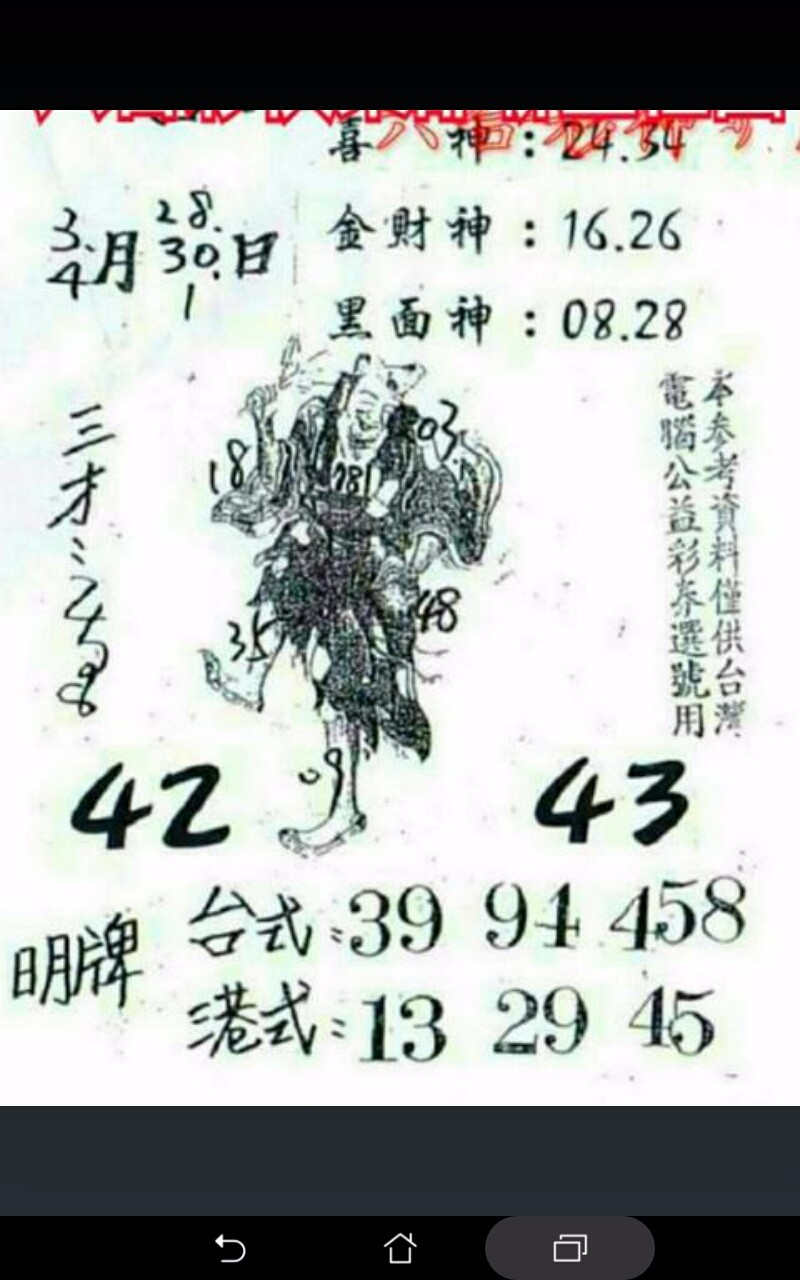 喜神：24.34
3.4月28.30.1日
金財神：16.26
黑面神：08.28
本參考資料僅供台灣
電腦公益彩券選號用
三才
03
18
781
48
35
09
42
43
明牌
台式：39 94 458
港式：13 29 45